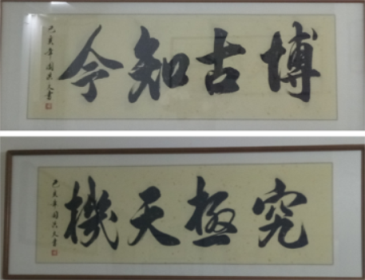 博古知今
究極天機